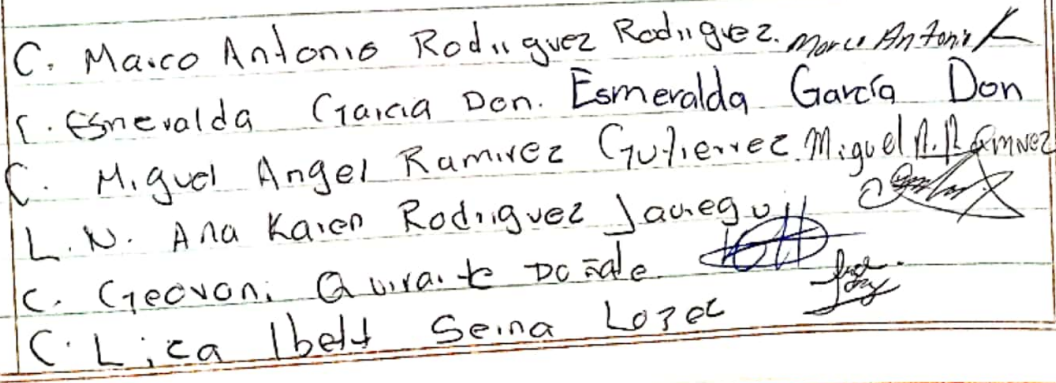 C. Marco Antonio Rodriguez Rodriguez. Marco Antonio R
C. Esmeralda Garcia Don. Esmeralda García Don
C. Miguel Angel Ramirez Gutierrez. Miguel A. Ramirez
L.N. Ana Karen Rodriguez Jauregui
C. Geovani Quirarte
C. Lica Ibett Serna